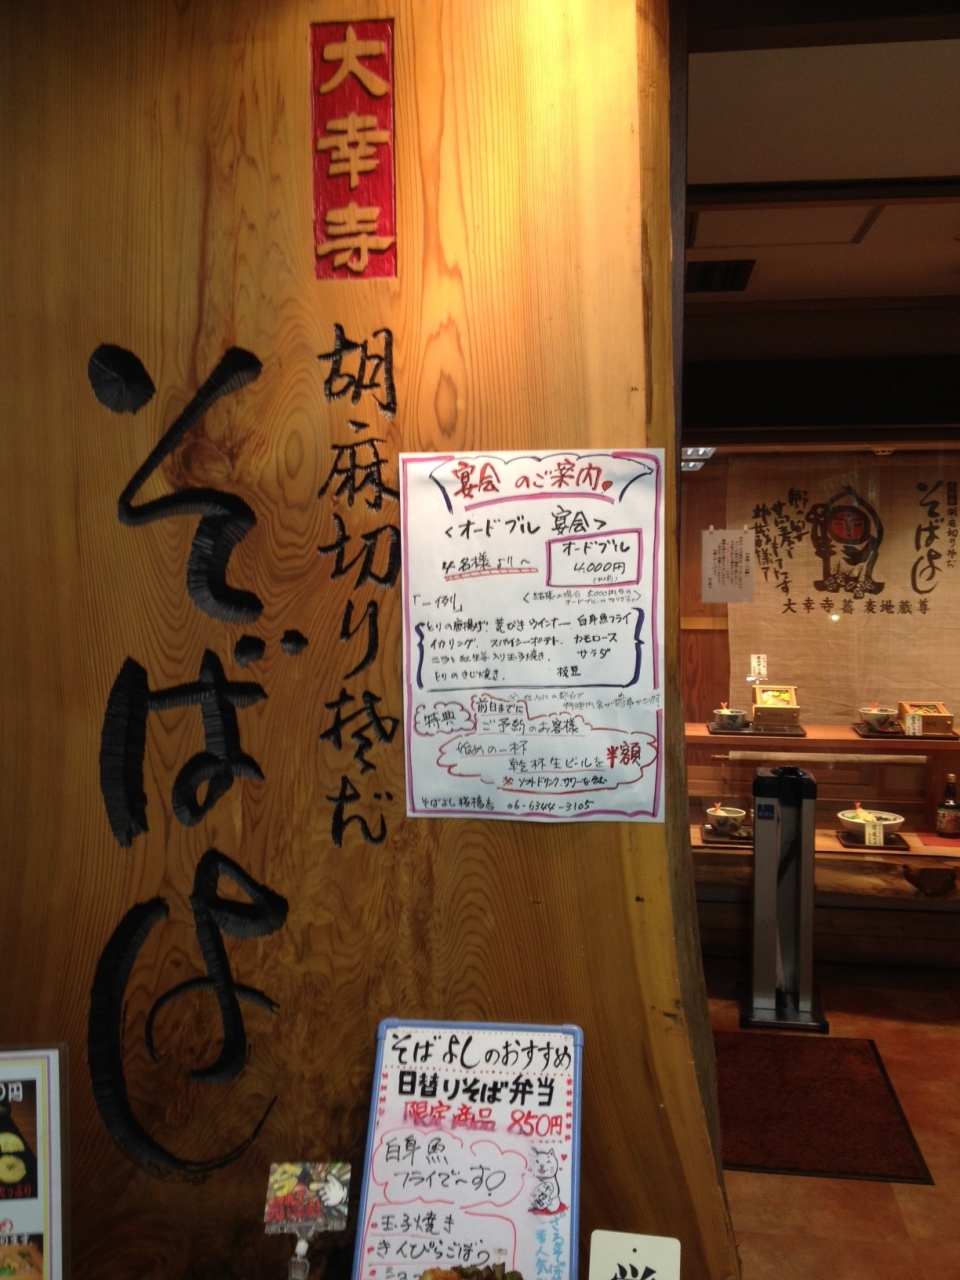 大幸寺
胡麻切り蕎だ
そばよし
宴会 のご案内
<オードブル 宴会>
4名様より〜
オードブル
4,000円
「一例」
とりの唐揚げ. 荒びきウインナー 白身魚フライ
イカリング. スパイシーポテト. カモロース
ニラと紅生姜入り玉子焼き. サラダ
とりのきじ焼き. 枝豆
特典
前日までに
ご予約のお客様
始めの一杯
乾杯生ビールを半額
※ソフトドリンク.サワーを含む
そばよし 06-6344-3105
そばよし
大幸寺蕎麦地蔵尊
そばよしのおすすめ
日替りそば弁当
限定商品 850円
白身魚
フライで〜す
玉子焼き
きんぴらごぼう